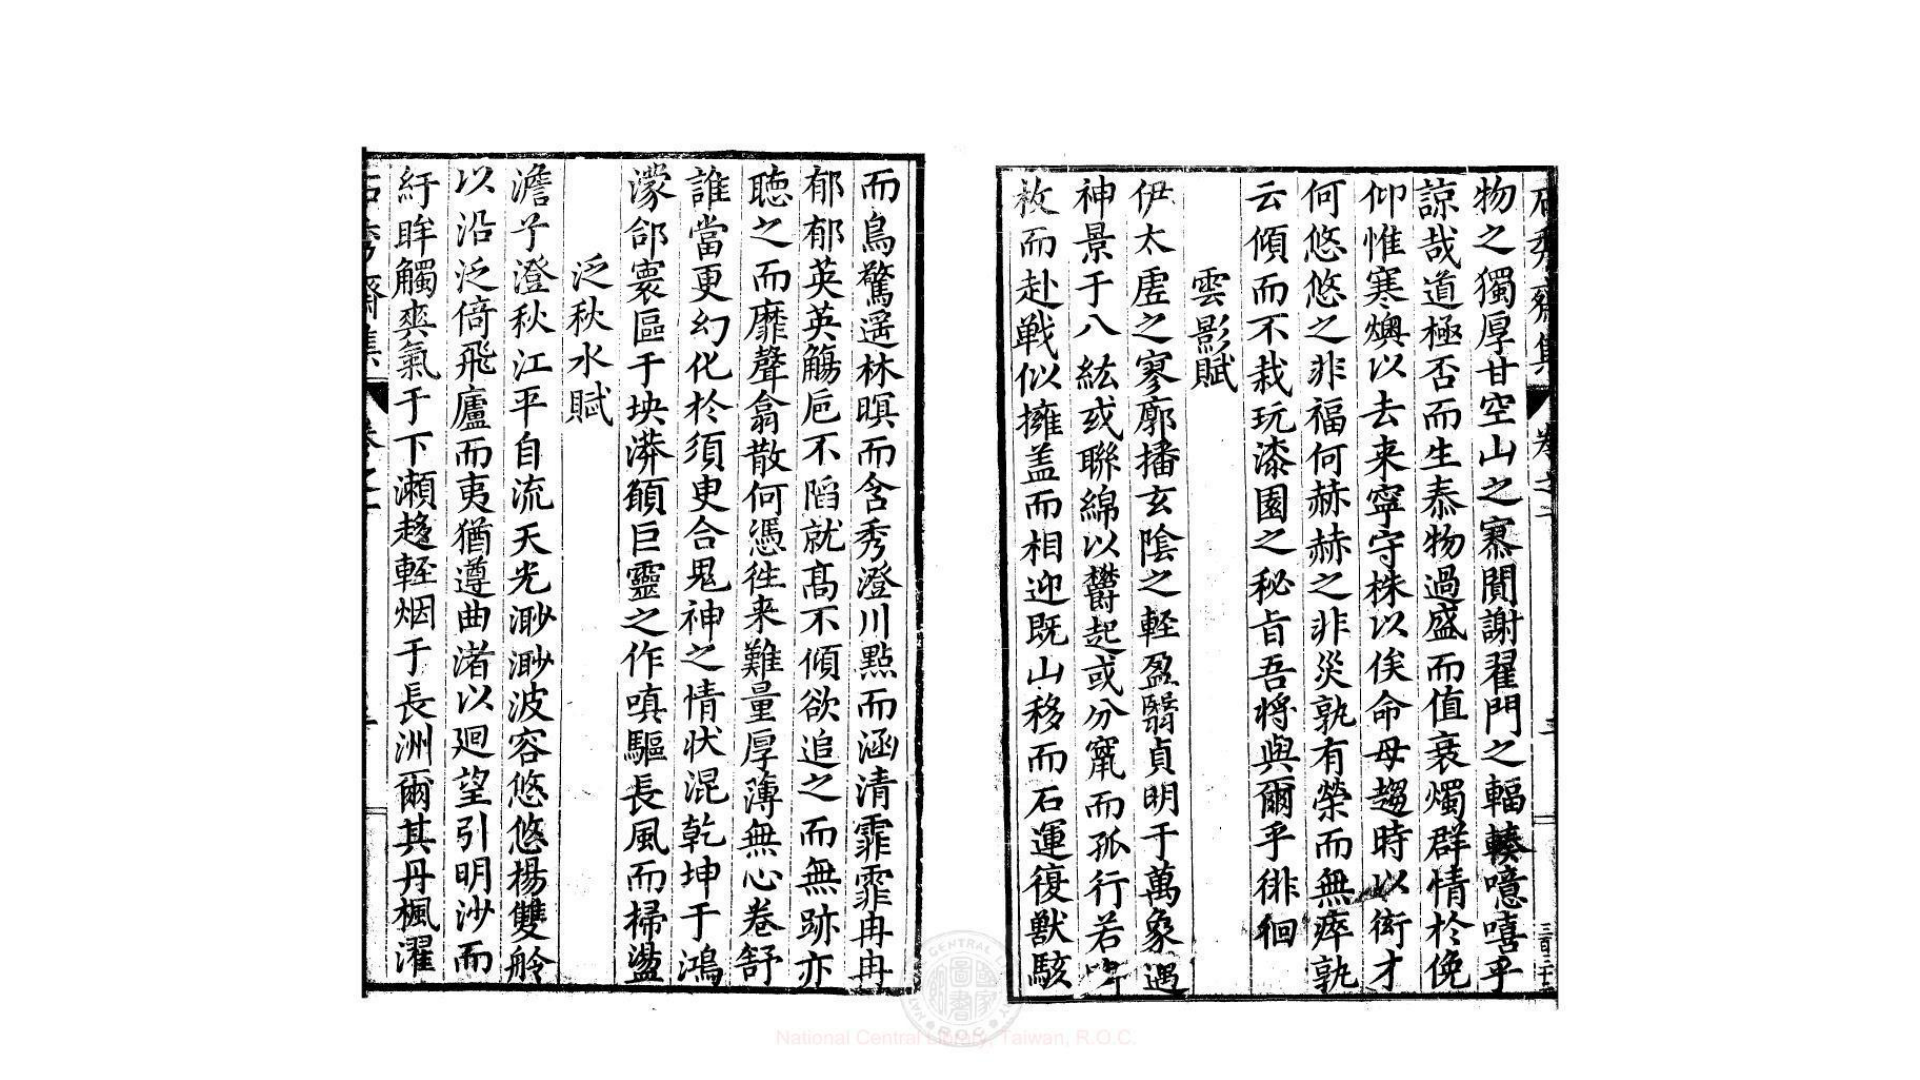 物之獨厚甘空山之寡閴謝翟門之輻輳噫嘻乎
諒哉道極否而生泰物過盛而值衰燭群情於俛
仰惟寒燠以去来寧守株以俟命毋趨時以衒才
何悠悠之非福何赫赫之非災孰有榮而無瘁孰
云傾而不栽玩漆園之秘旨吾将與爾乎徘徊
雲影賦
伊太虗之寥廓播玄隂之輕盈翳貞明于萬象遇
神景于八紘或聯綿以欝起或分竄而孤行若
枚而赴戰似擁盖而相迎既山移而石運復獸駭
而鳥驚遥林暝而含秀澄川點而涵清霏霏冉冉
郁郁英英觴巵不䧟就髙不傾欲追之而無跡亦
聴之而靡聲翕散何憑徃来難量厚薄無心卷舒
誰當更幻化於須臾合鬼神之情状混乾坤于鴻
濛郃寰區于坱漭頠巨靈之作嗔驅長風而掃盪
泛秋水賦
澹予澄秋江平自流天光渺渺波容悠悠楊雙舲
以沿泛倚飛廬而夷猶遵曲渚以廻望引明沙而
紆眸觸爽氣于下瀬趍輕烟于長洲爾其丹楓濯